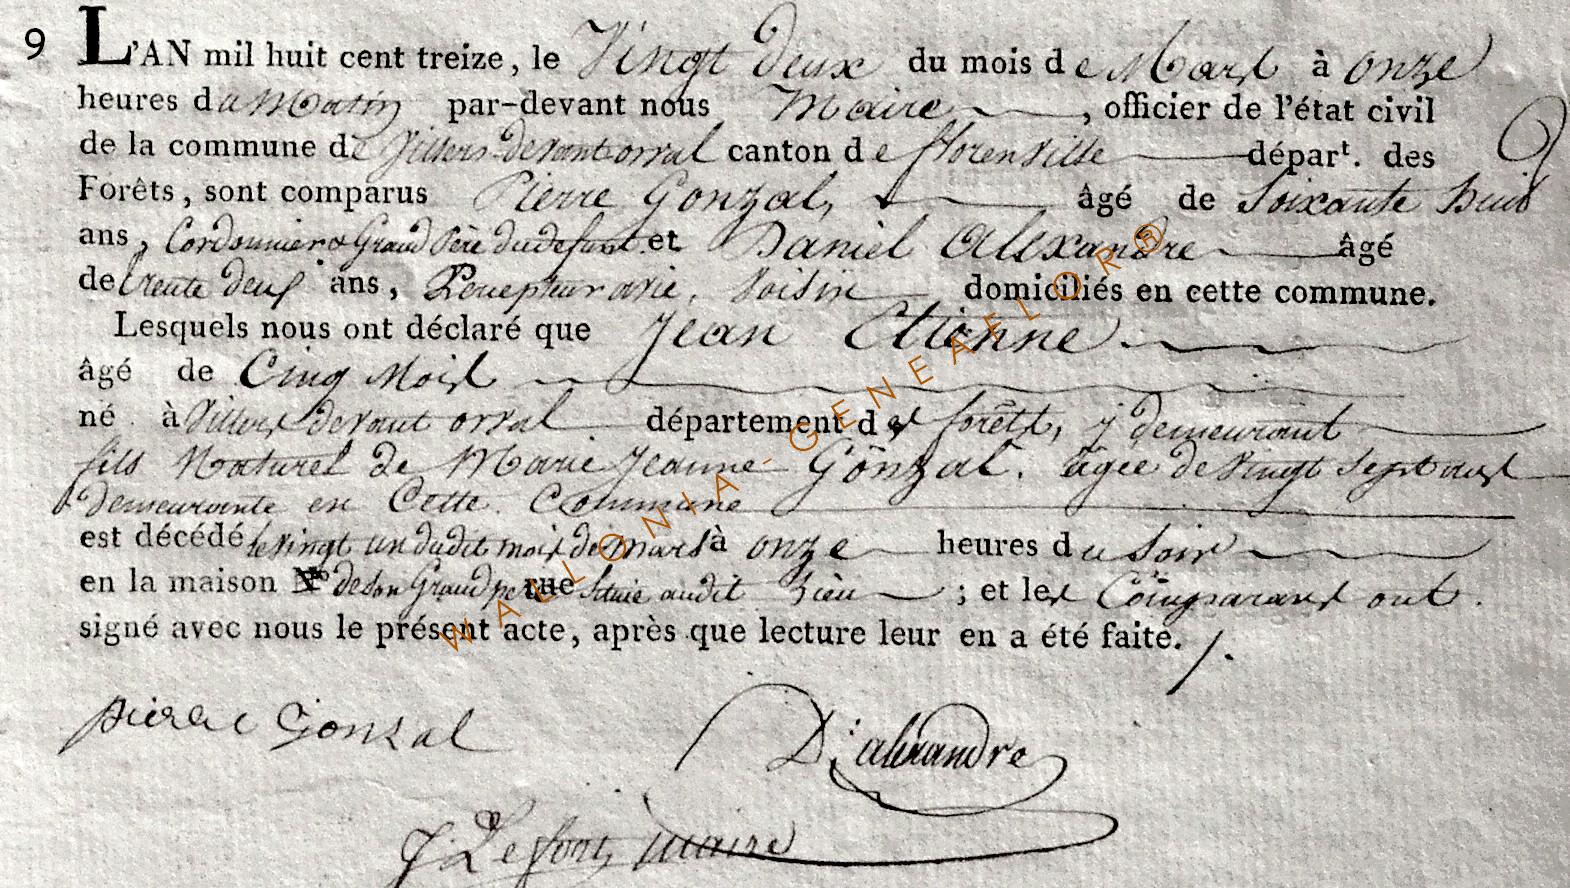 9 L'AN mil huit cent treize, le Vingt Deux du mois de Mars à onze
heures du Matin par-devant nous Maire, officier de l'état civil
de la commune de Villers-devant-orval canton de florenville départ. des
Forêts, sont comparus Pierre Gonzal, âgé de Soixante huit
ans, Cordonnier & Grand Père du defunt et Daniel Alexandre âgé
de trente deux ans, voisin domiciliés en cette commune.
Lesquels nous ont déclaré que Jean Etienne
âgé de Cinq Mois
né à Villers devant orval département des forêts, y demeurant
fils Naturel de Marie Jeanne Gonzal. agée de vingt sept ans
demeurante en Cette Commune
est décédé le vingt un dudit mois de mars à onze heures du Soir
en la maison No de son Grand pere rue Scituée audit Lieu ; et les Comparans ont
signé avec nous le présent acte, après que lecture leur en a été faite. /.
pierre Gonzal
D: alexandre
J Lefort maire
WALLONIA-GENEAFLOR®